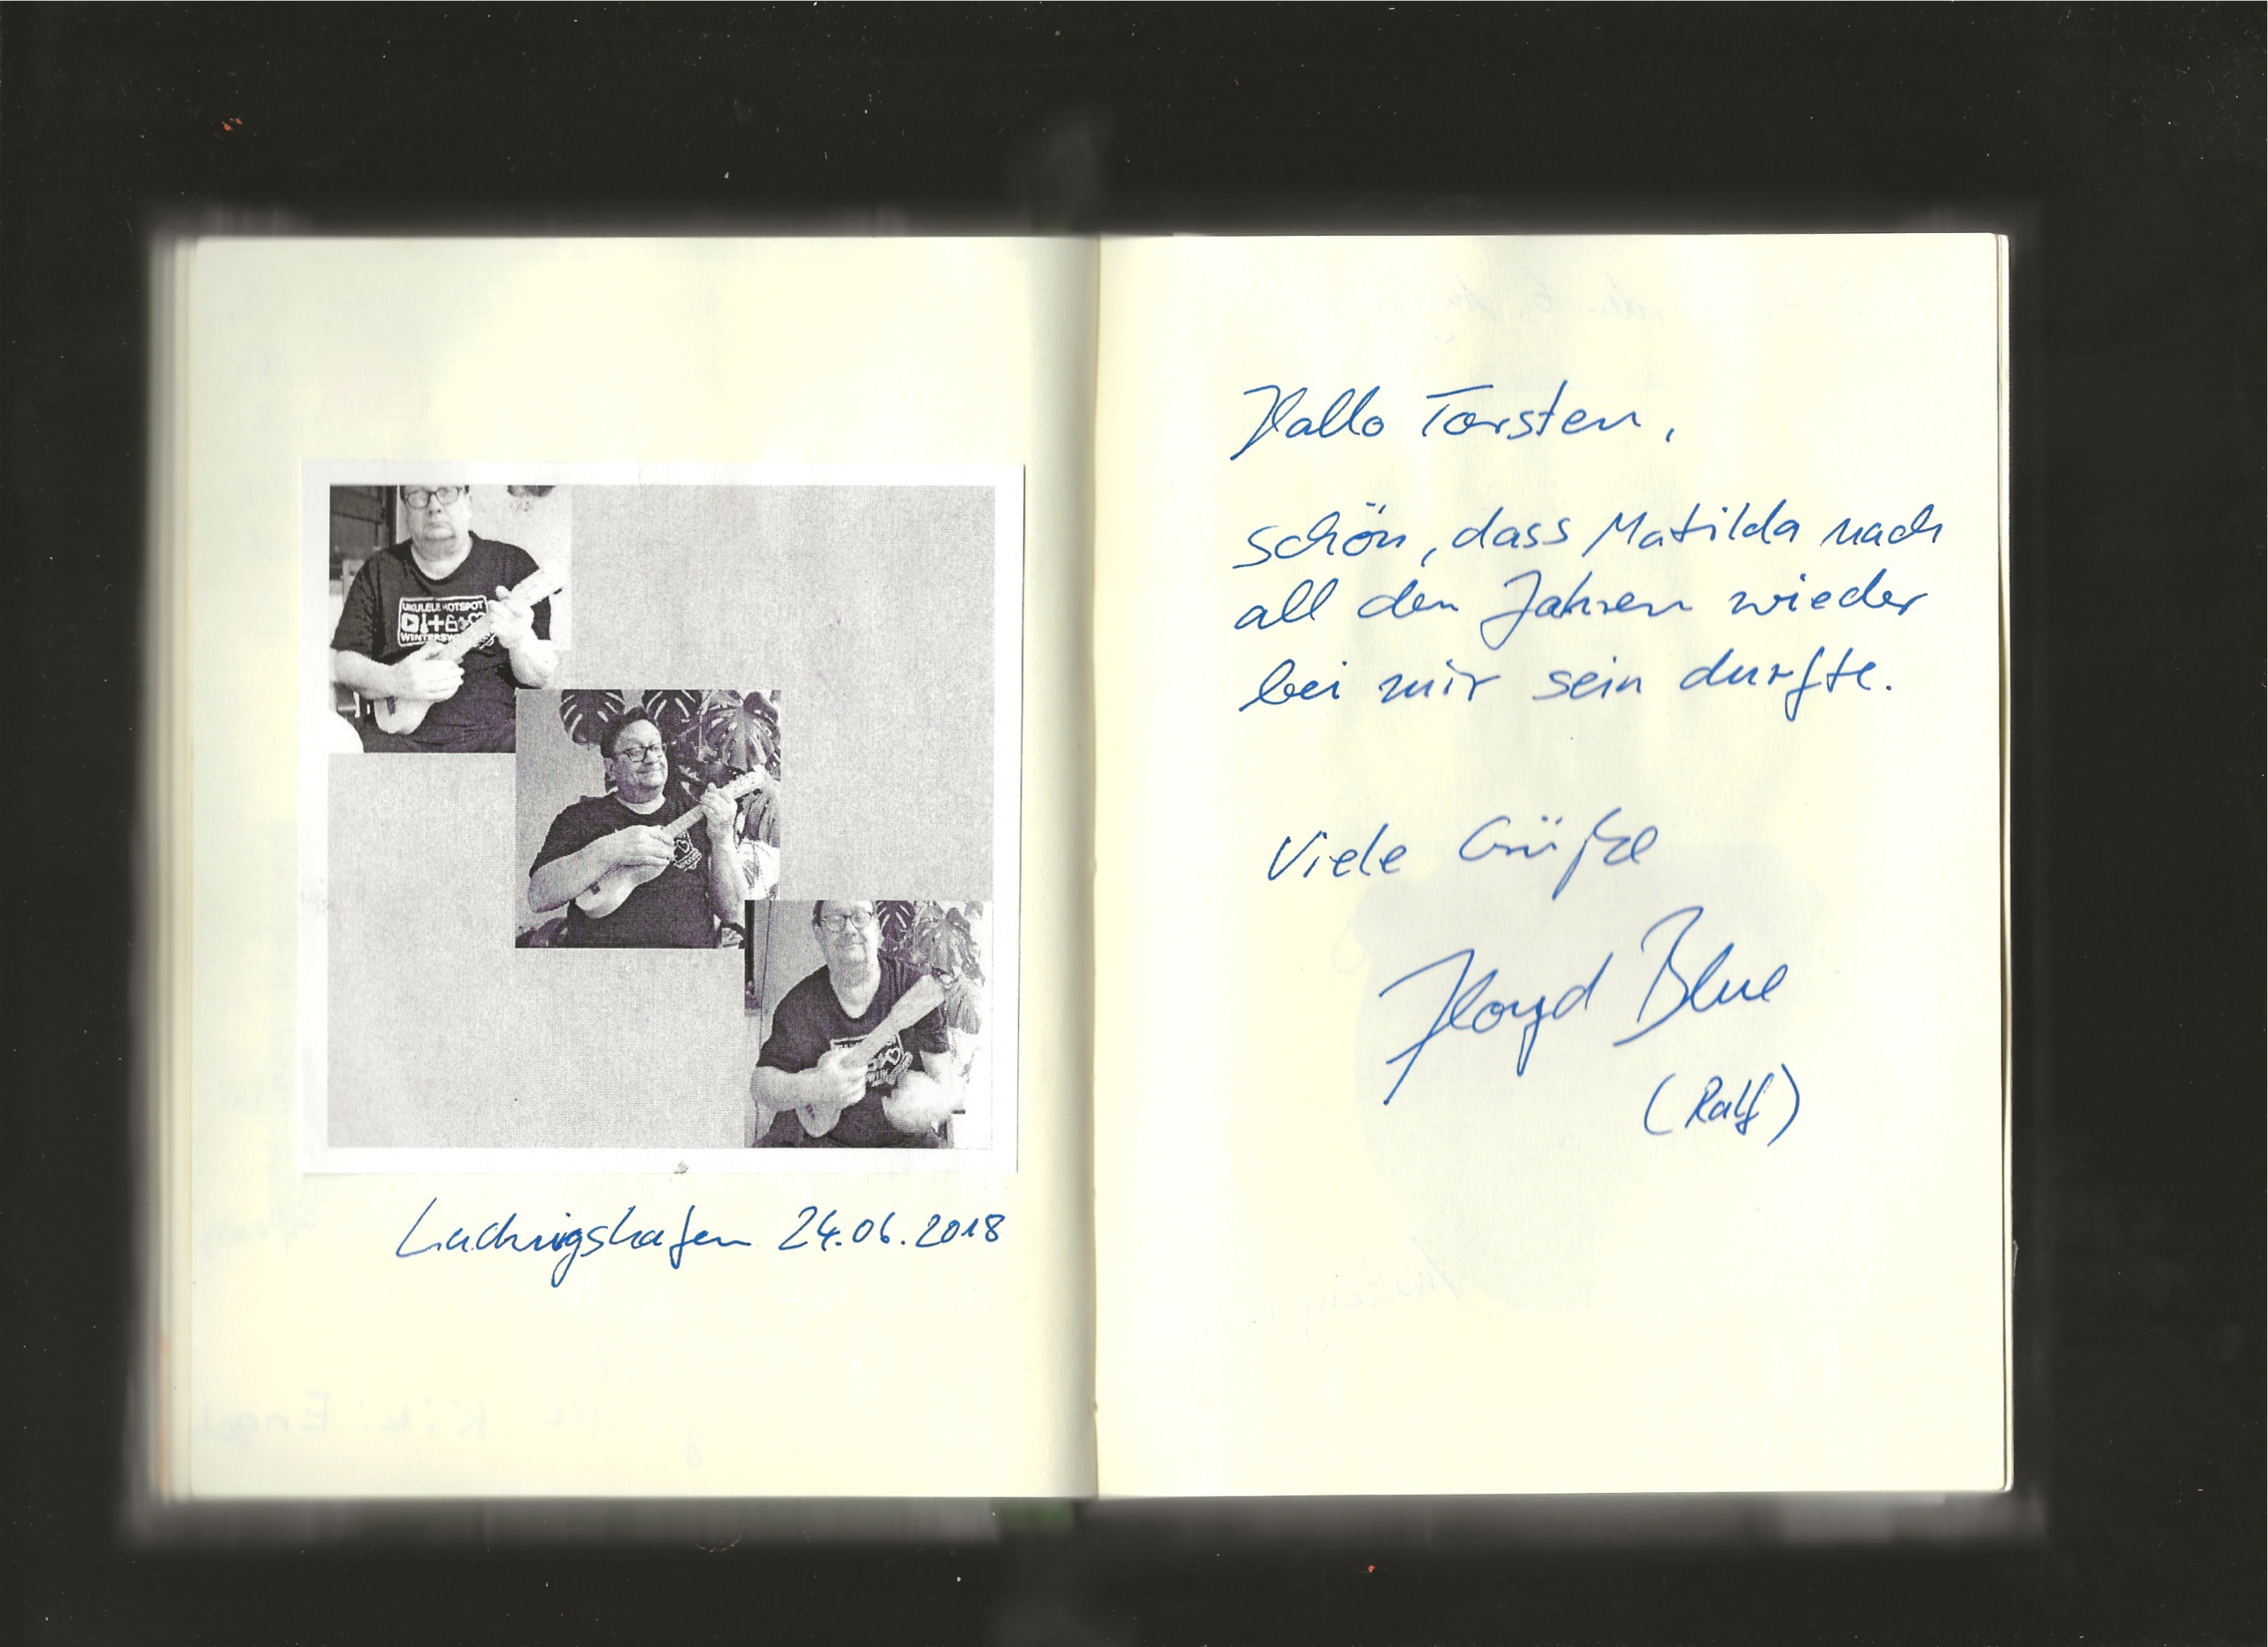 UKULELE HOTSPOT
WINTERSWI
Ludwigshafen 24.06.2018
Hallo Torsten,
schön, dass Matilda nach
all den Jahren wieder
bei mir sein durfte.
Viele Grüße
Floyd Blue
(Ralf)